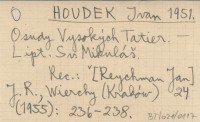 O HOUDEK Ivan 1951.
Osudy Vysokých Tatier. —
Lipt. Sv. Mikuláš.
Rec.: [Reychman Jan]
J. R., Wierchy (Kraków) 24
(1955): 236-238.